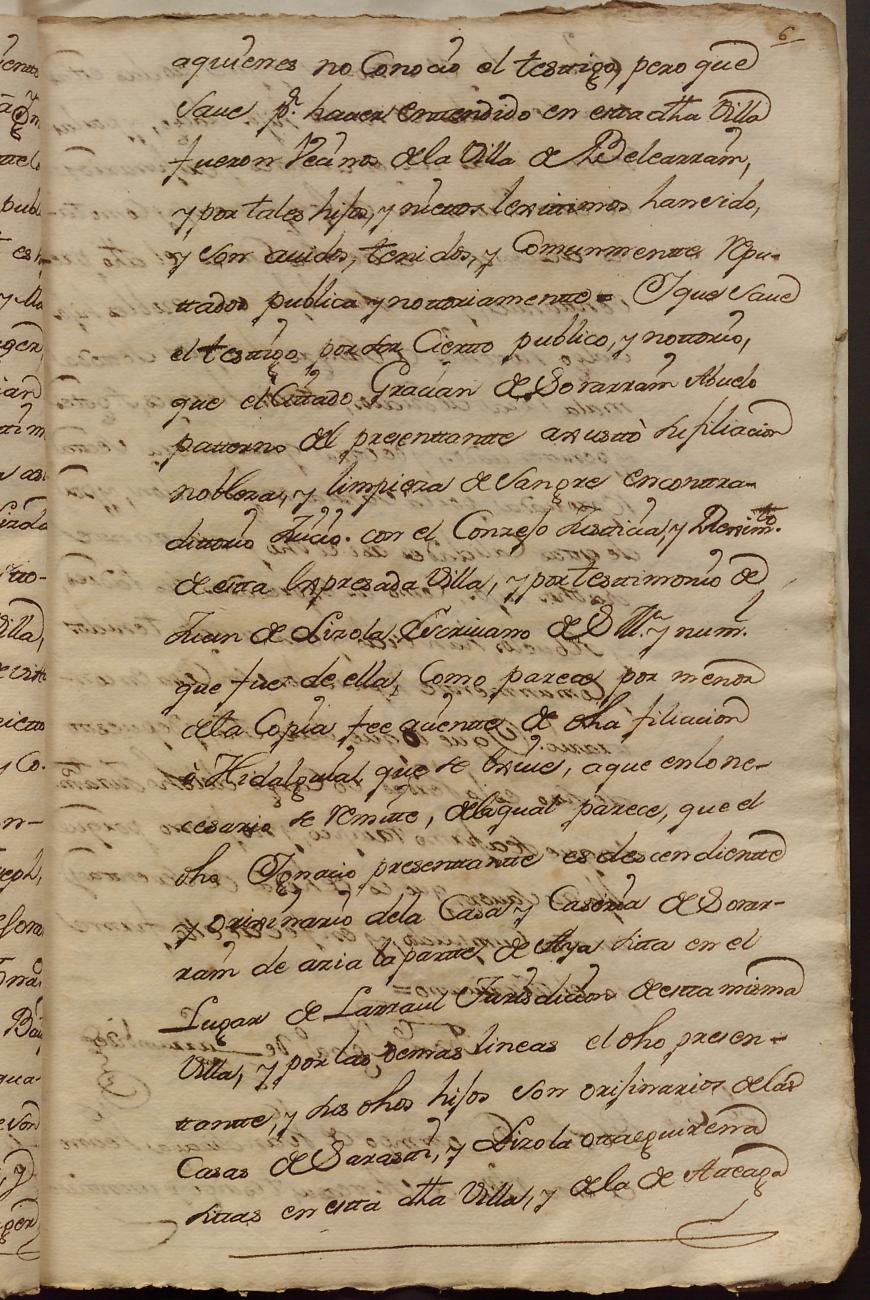 6
aquienes no Conocio el testigo, pero que
Save pr. haver entendido en esta dha Villa
fueron Vecinos de la Villa de Belcarram,
y por tales hijos, y nietos lexitimos han sido,
y son avidos, tenidos, y Comunmente repu-
ttados publica y nottoriamente = Y que save
el testigo por ser Cierto publico, y nottorio,
que el Cittado Gracian de Sorarram Abuelo
patterno del presenttante avustò su filiacion
nobleza, y limpieza de Sangre en contra-
dittorio Juicio. con el Conzejo Justicia, y Reximto.
de esta Expresada Villa, y por testimonio de
Juan de Lizola, Escrivano de S. M. y numl.
que fue de ella, Como parece por menor
de la Copia fee q.uente de dha filiacion
è Hidalguia, que se Exive, a que en lo ne-
cesario se remite, de la qual parece, que el
dho Ygnacio presenttante es descendiente
y orixinario de la Casa y Caseria de Sorar-
ram de azia la parte de Aya sita en el
Lugar de Larraul Jurisdicion de esta misma
Villa, y por las demas lineas el dho presen-
ttante, y sus dhos hijos son orijinarios de las
Casas de Sarasti, y Lizola ottaeguirena
sitas en esta dha Villa, y de la de Ateaga